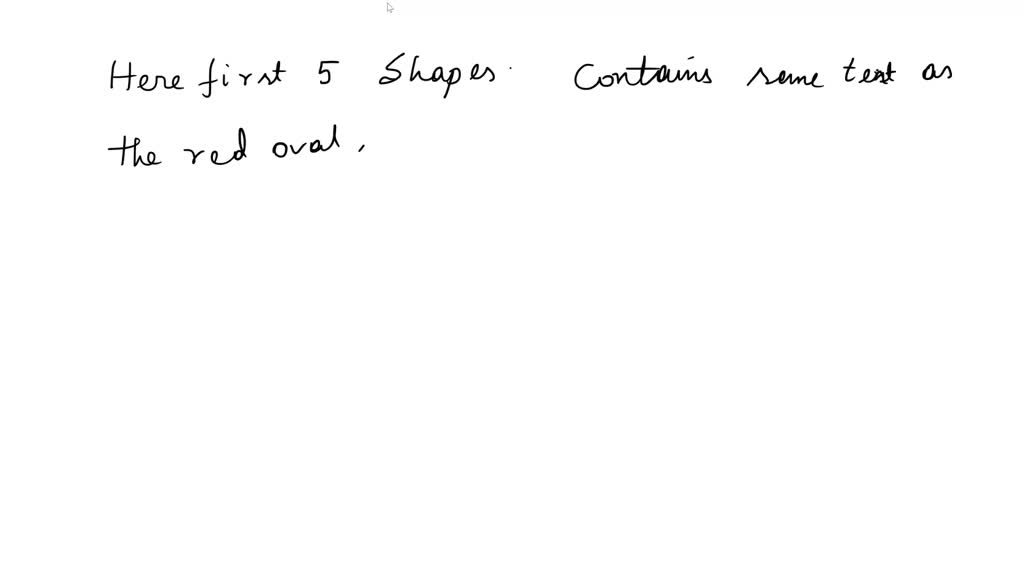 Here first 5 Shapes. Contains same text as
the red oval,